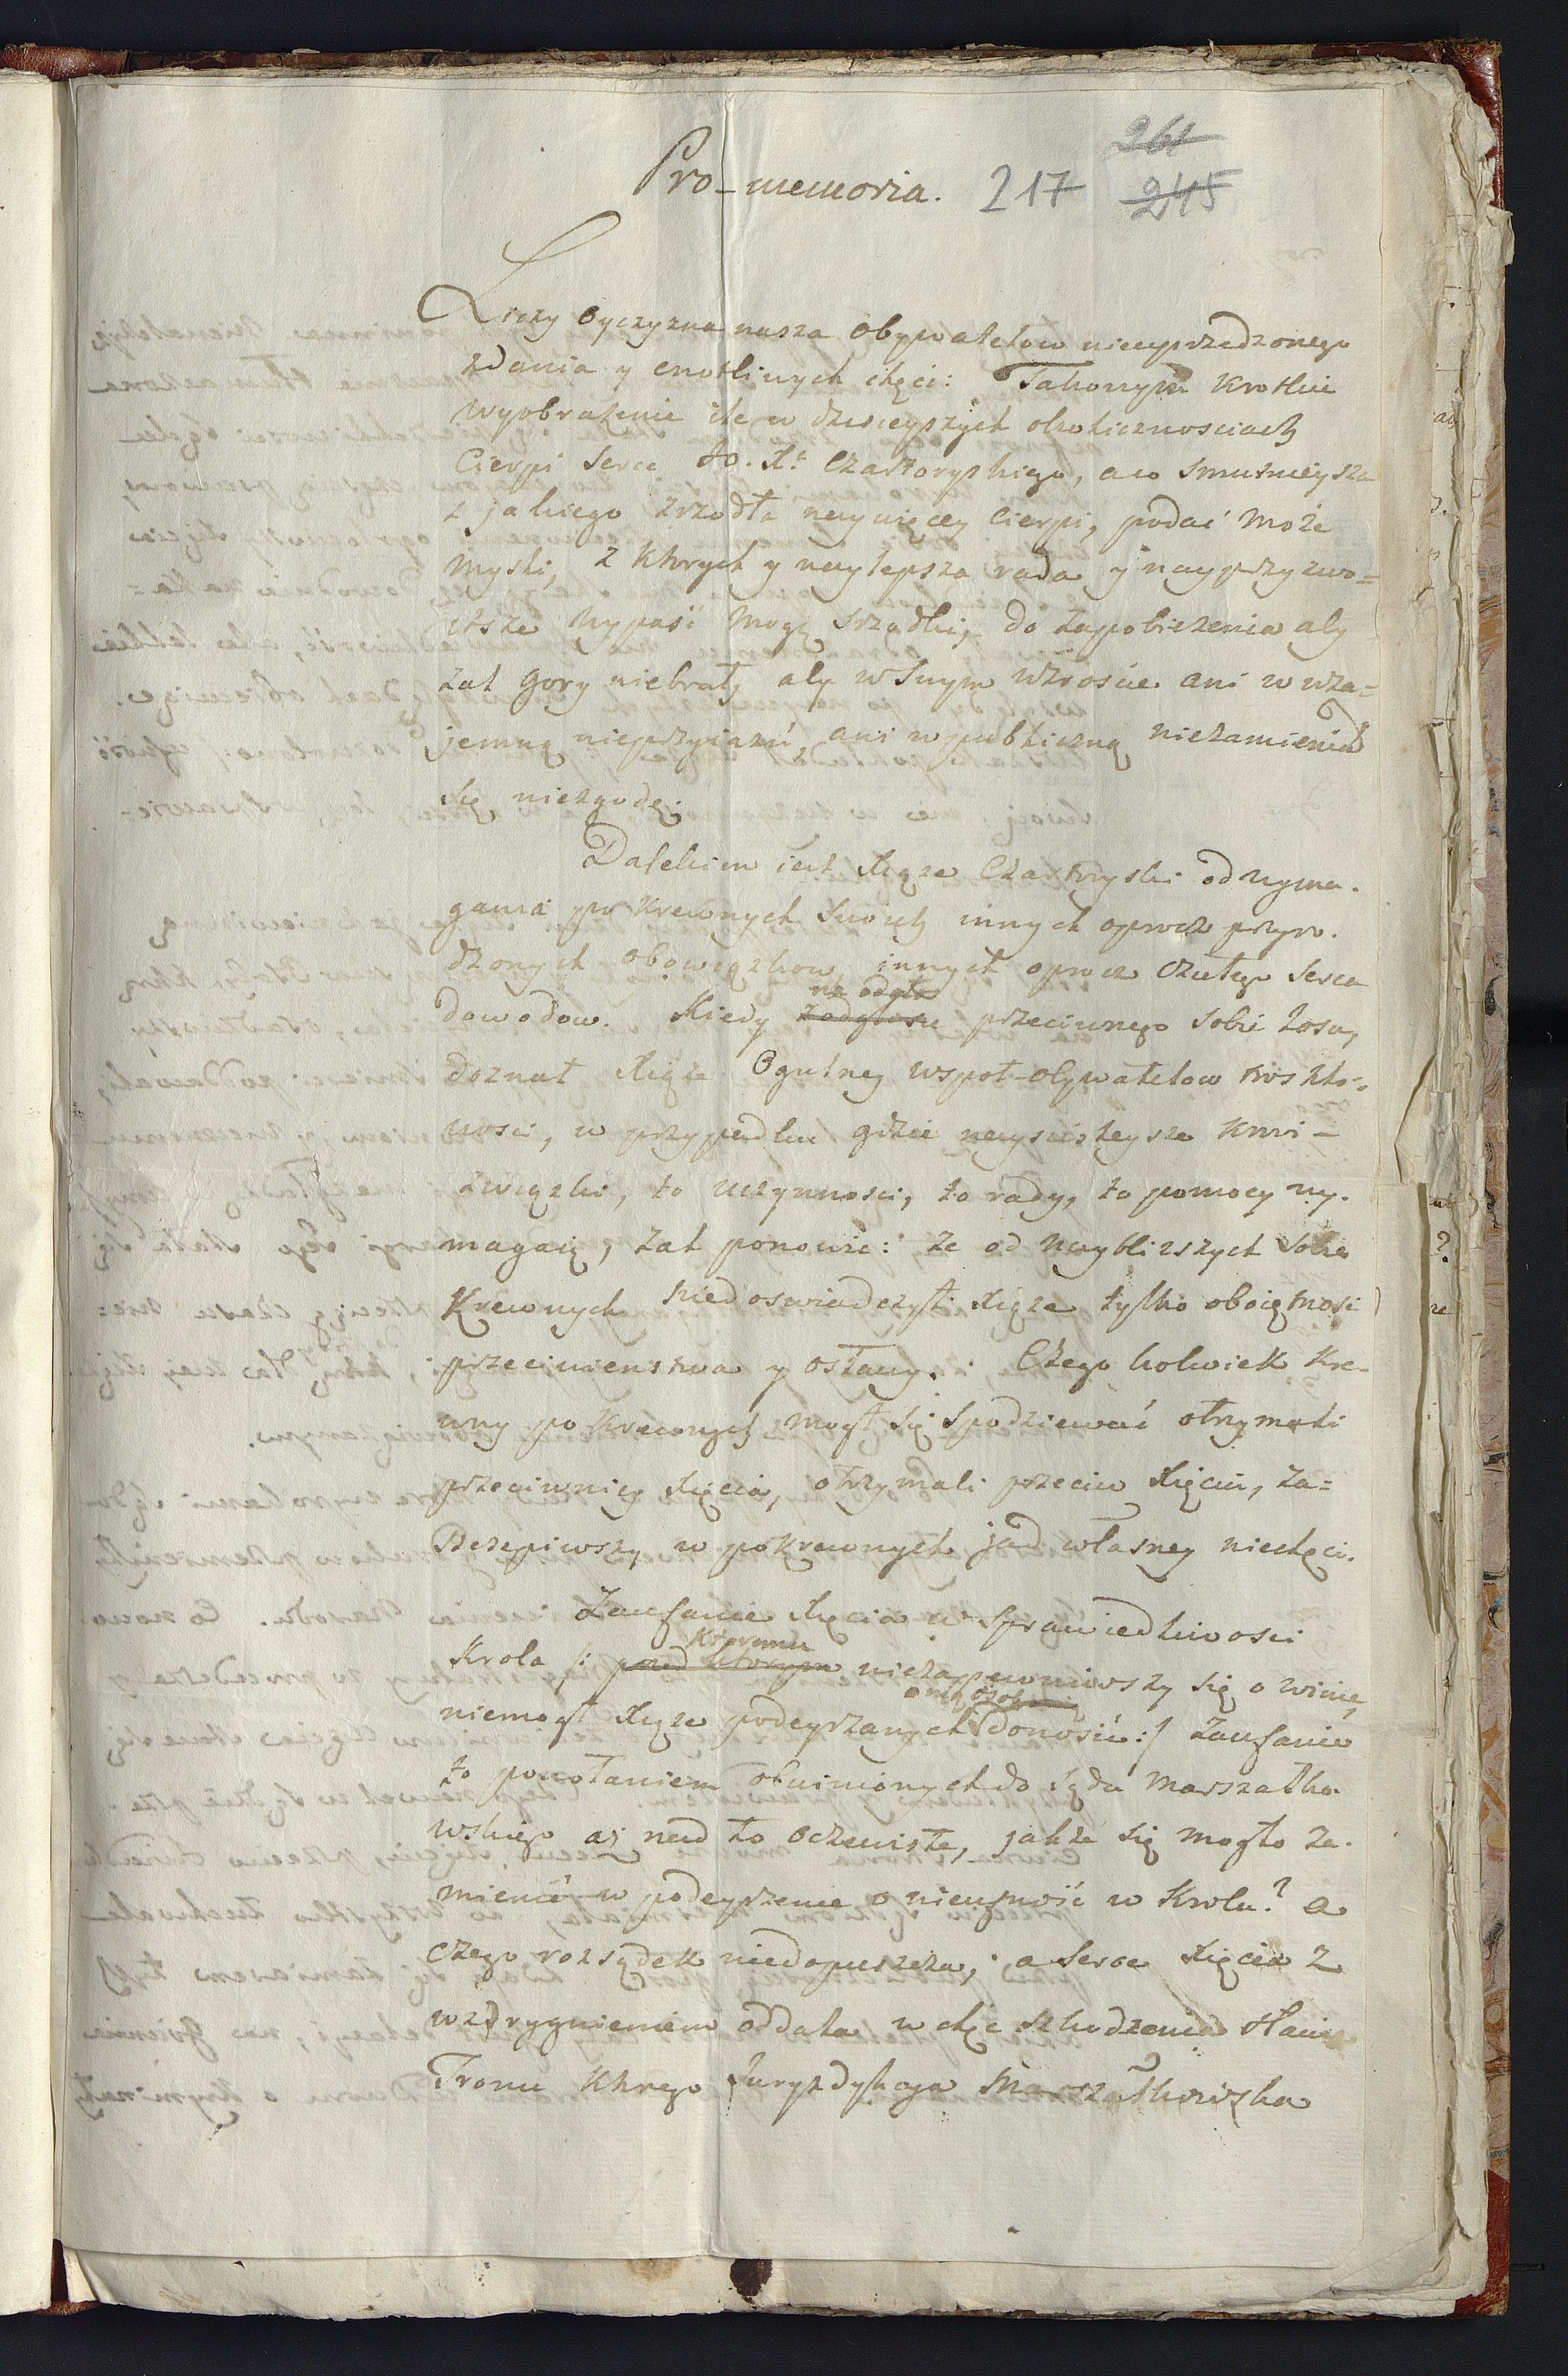 261
Pro-memoria. 217 245
Liczy Oyczyzna nasza Obywatelow nieuprzedzonego
zdania y cnotliwych chęci: Takowym krotkie
wyobrażenie ile w dzisieyszych okolicznosciach
Cierpi serce JO. Xcia Czartoryskiego, a co smutnieysza
z jakiego zrzodła naywięcey cierpi, podać może
myśli, z ktorych y naylepsza rada y nayprzyzwo=
itsze wypaść mogą srzodki, do zapobieżenia aby
żal gory niebrał, aby w swym wzroscie ani w wza=
jemną nieprzyiazń, ani w publiczną niezamieniał
się niezgodę.
Dalekim iest Xiąże Czartoryski od wyma.
gania po krewnych swoich innych oprocz przyro.
dzonych obowiązkow, innych oprocz czułego serca
na odgłos
dowodow. Kiedy z odgłosu przeciwnego sobie losu,
doznał Xiąże Ogulney wspoł-obywatelow troskli-
wosci, w przypadku gdzie nayscisleysze krwi-
związki, to uczynnosci, to rady, to pomocy wy.
magaią, żal ponowić: że od naybliższych sobie
Krewnych niedoswiadczył Xiąże tylko oboiętnosci
przeciwienstwa y osławy. Czego kolwiek kre-
wny po krewnych mogł się spodziewać otrzymali
przeciwnicy Xięcia, otrzymali przeciw Xięciu, za=
szczepiwszy w pokrewnych jad własney niechęci.
Zaufanie Xięcia w sprawiedliwosci
Ktoremu
Krola /: przed ktorym niezapewniwszy się o winie,
niemogł Xiąże podeyrzanych donosić :/ zaufanie
to powołaniem obwinionych do sądu Marszałko.
wskiego aż nad to oczewiste, jakże się mogło za.
mienić w podeyrzenie o nieufność w Krolu? a
czego rozsądek niedopuszcza, a serce Xięcia z
wzdrygnieniem oddala w chęć szkodzenia sławie
Tronu ktorego Juryzdykcya Marszałkowska